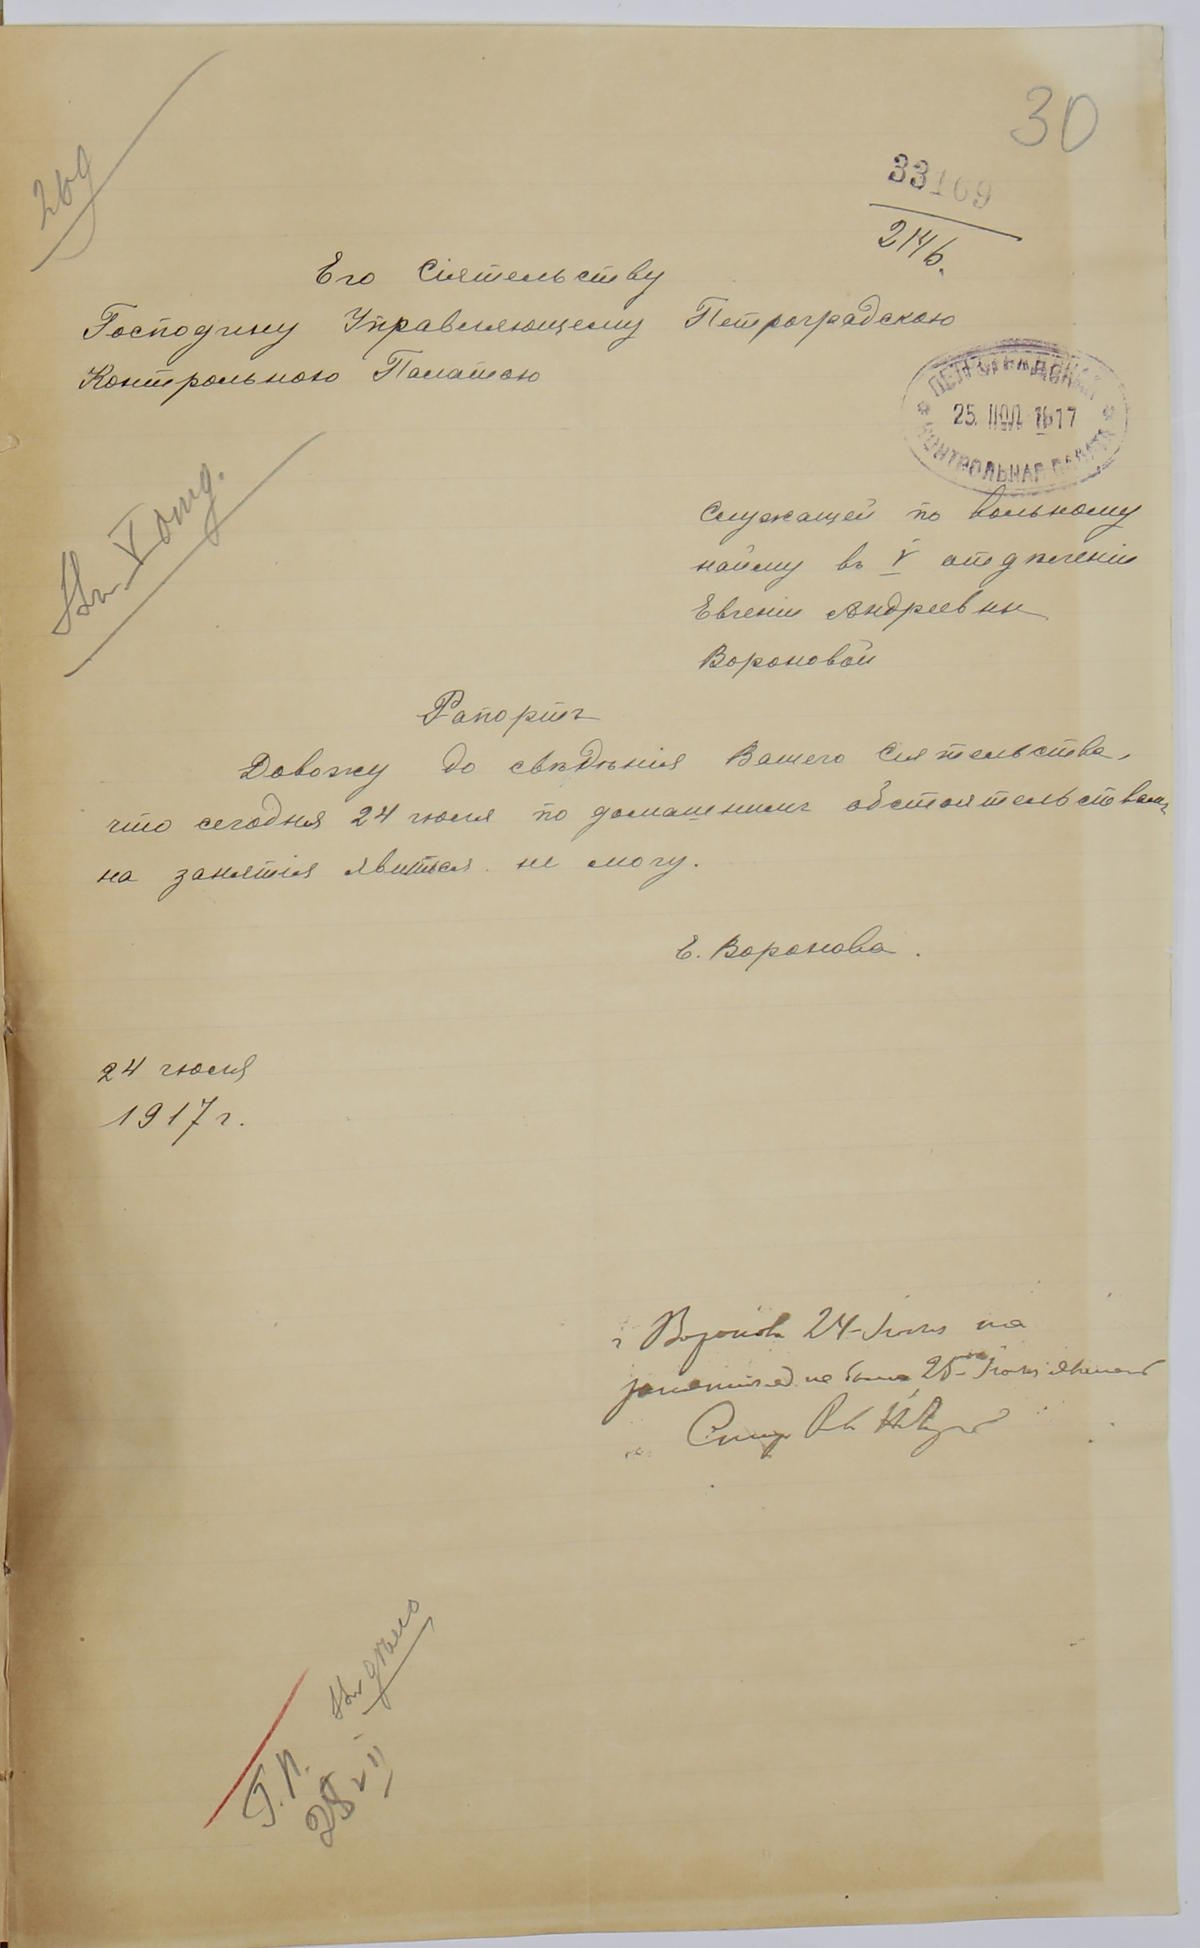 30
269
33169
2146.
Его Сіятельству
Господину Управляющему Петроградскою
Контрольною Палатою
ПЕТРОГРАДСКАЯ
25. ІЮЛ. 1917
КОНТРОЛЬНАЯ ПАЛАТА
V отд.
Служащей по вольному
найму въ V отдѣленіи
Евгеніи Андреевны
Вороновой
Рапортъ
Довожу до свѣдѣнія Вашего Сіятельства,
что сегодня 24 іюля по домашнимъ обстоятельствамъ
на занятія явиться не могу.
Е. Воронова.
24 іюля
1917 г.
г Воронова 24 Іюля на
занятіяхъ не была, 25 Іюля
Къ дѣлу
28 VII